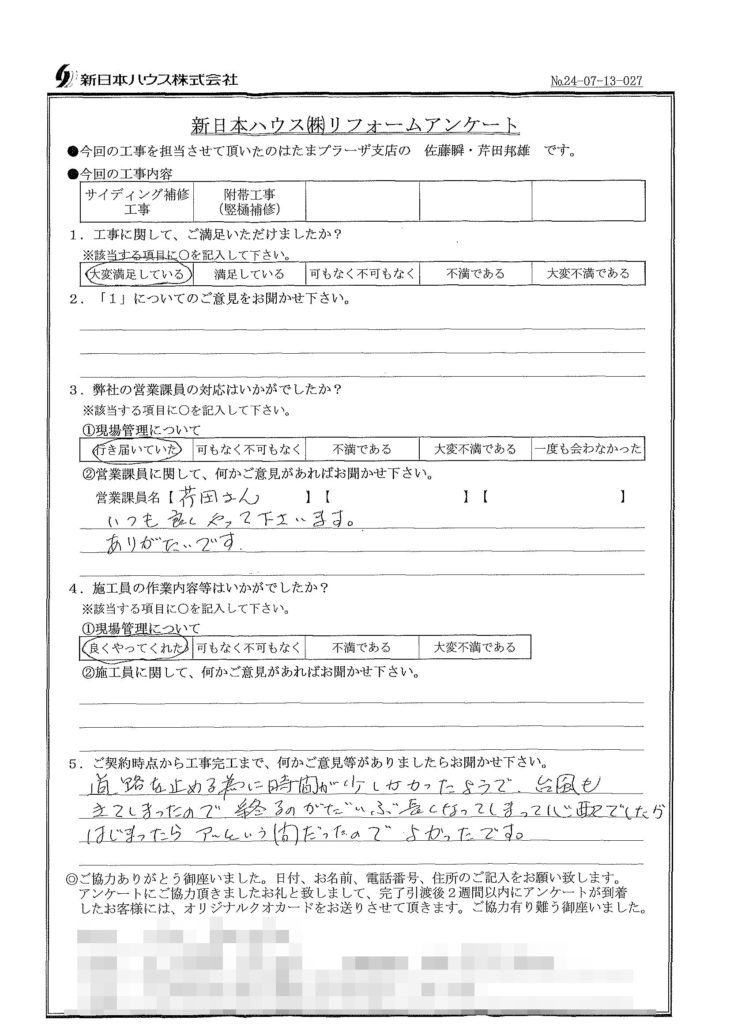 新日本ハウス株式会社
№24-07-13-027
新日本ハウス㈱リフォームアンケート
●今回の工事を担当させて頂いたのはたまプラーザ支店の 佐藤瞬・芹田邦雄 です。
●今回の工事内容
サイディング補修工事 附帯工事(竪樋補修)
1．工事に関して、ご満足いただけましたか？
※該当する項目に○を記入して下さい。
大変満足している 満足している 可もなく不可もなく 不満である 大変不満である
2．「1」についてのご意見をお聞かせ下さい。
3．弊社の営業課員の対応はいかがでしたか？
※該当する項目に○を記入して下さい。
①現場管理について
行き届いていた 可もなく不可もなく 不満である 大変不満である 一度も会わなかった
②営業課員に関して、何かご意見があればお聞かせ下さい。
営業課員名【芹田さん 】【 】【 】
いつも良くやって下さいます。
ありがたいです.
4．施工員の作業内容等はいかがでしたか？
※該当する項目に○を記入して下さい。
①現場管理について
良くやってくれた 可もなく不可もなく 不満である 大変不満である
②施工員に関して、何かご意見があればお聞かせ下さい。
5．ご契約時点から工事完工まで、何かご意見等がありましたらお聞かせ下さい。
道路を止める為に時間が少しかかったようで、台風も
きてしまったので 終るのがだいぶ長くなってしまって心配でしたが
はじまったら アーという間だったので よかったです。
◎ご協力ありがとう御座いました。日付、お名前、電話番号、住所のご記入をお願い致します。
アンケートにご協力頂きましたお礼と致しまして、完了引渡後2週間以内にアンケートが到着
したお客様には、オリジナルクオカードをお送りさせて頂きます。ご協力有り難う御座いました。